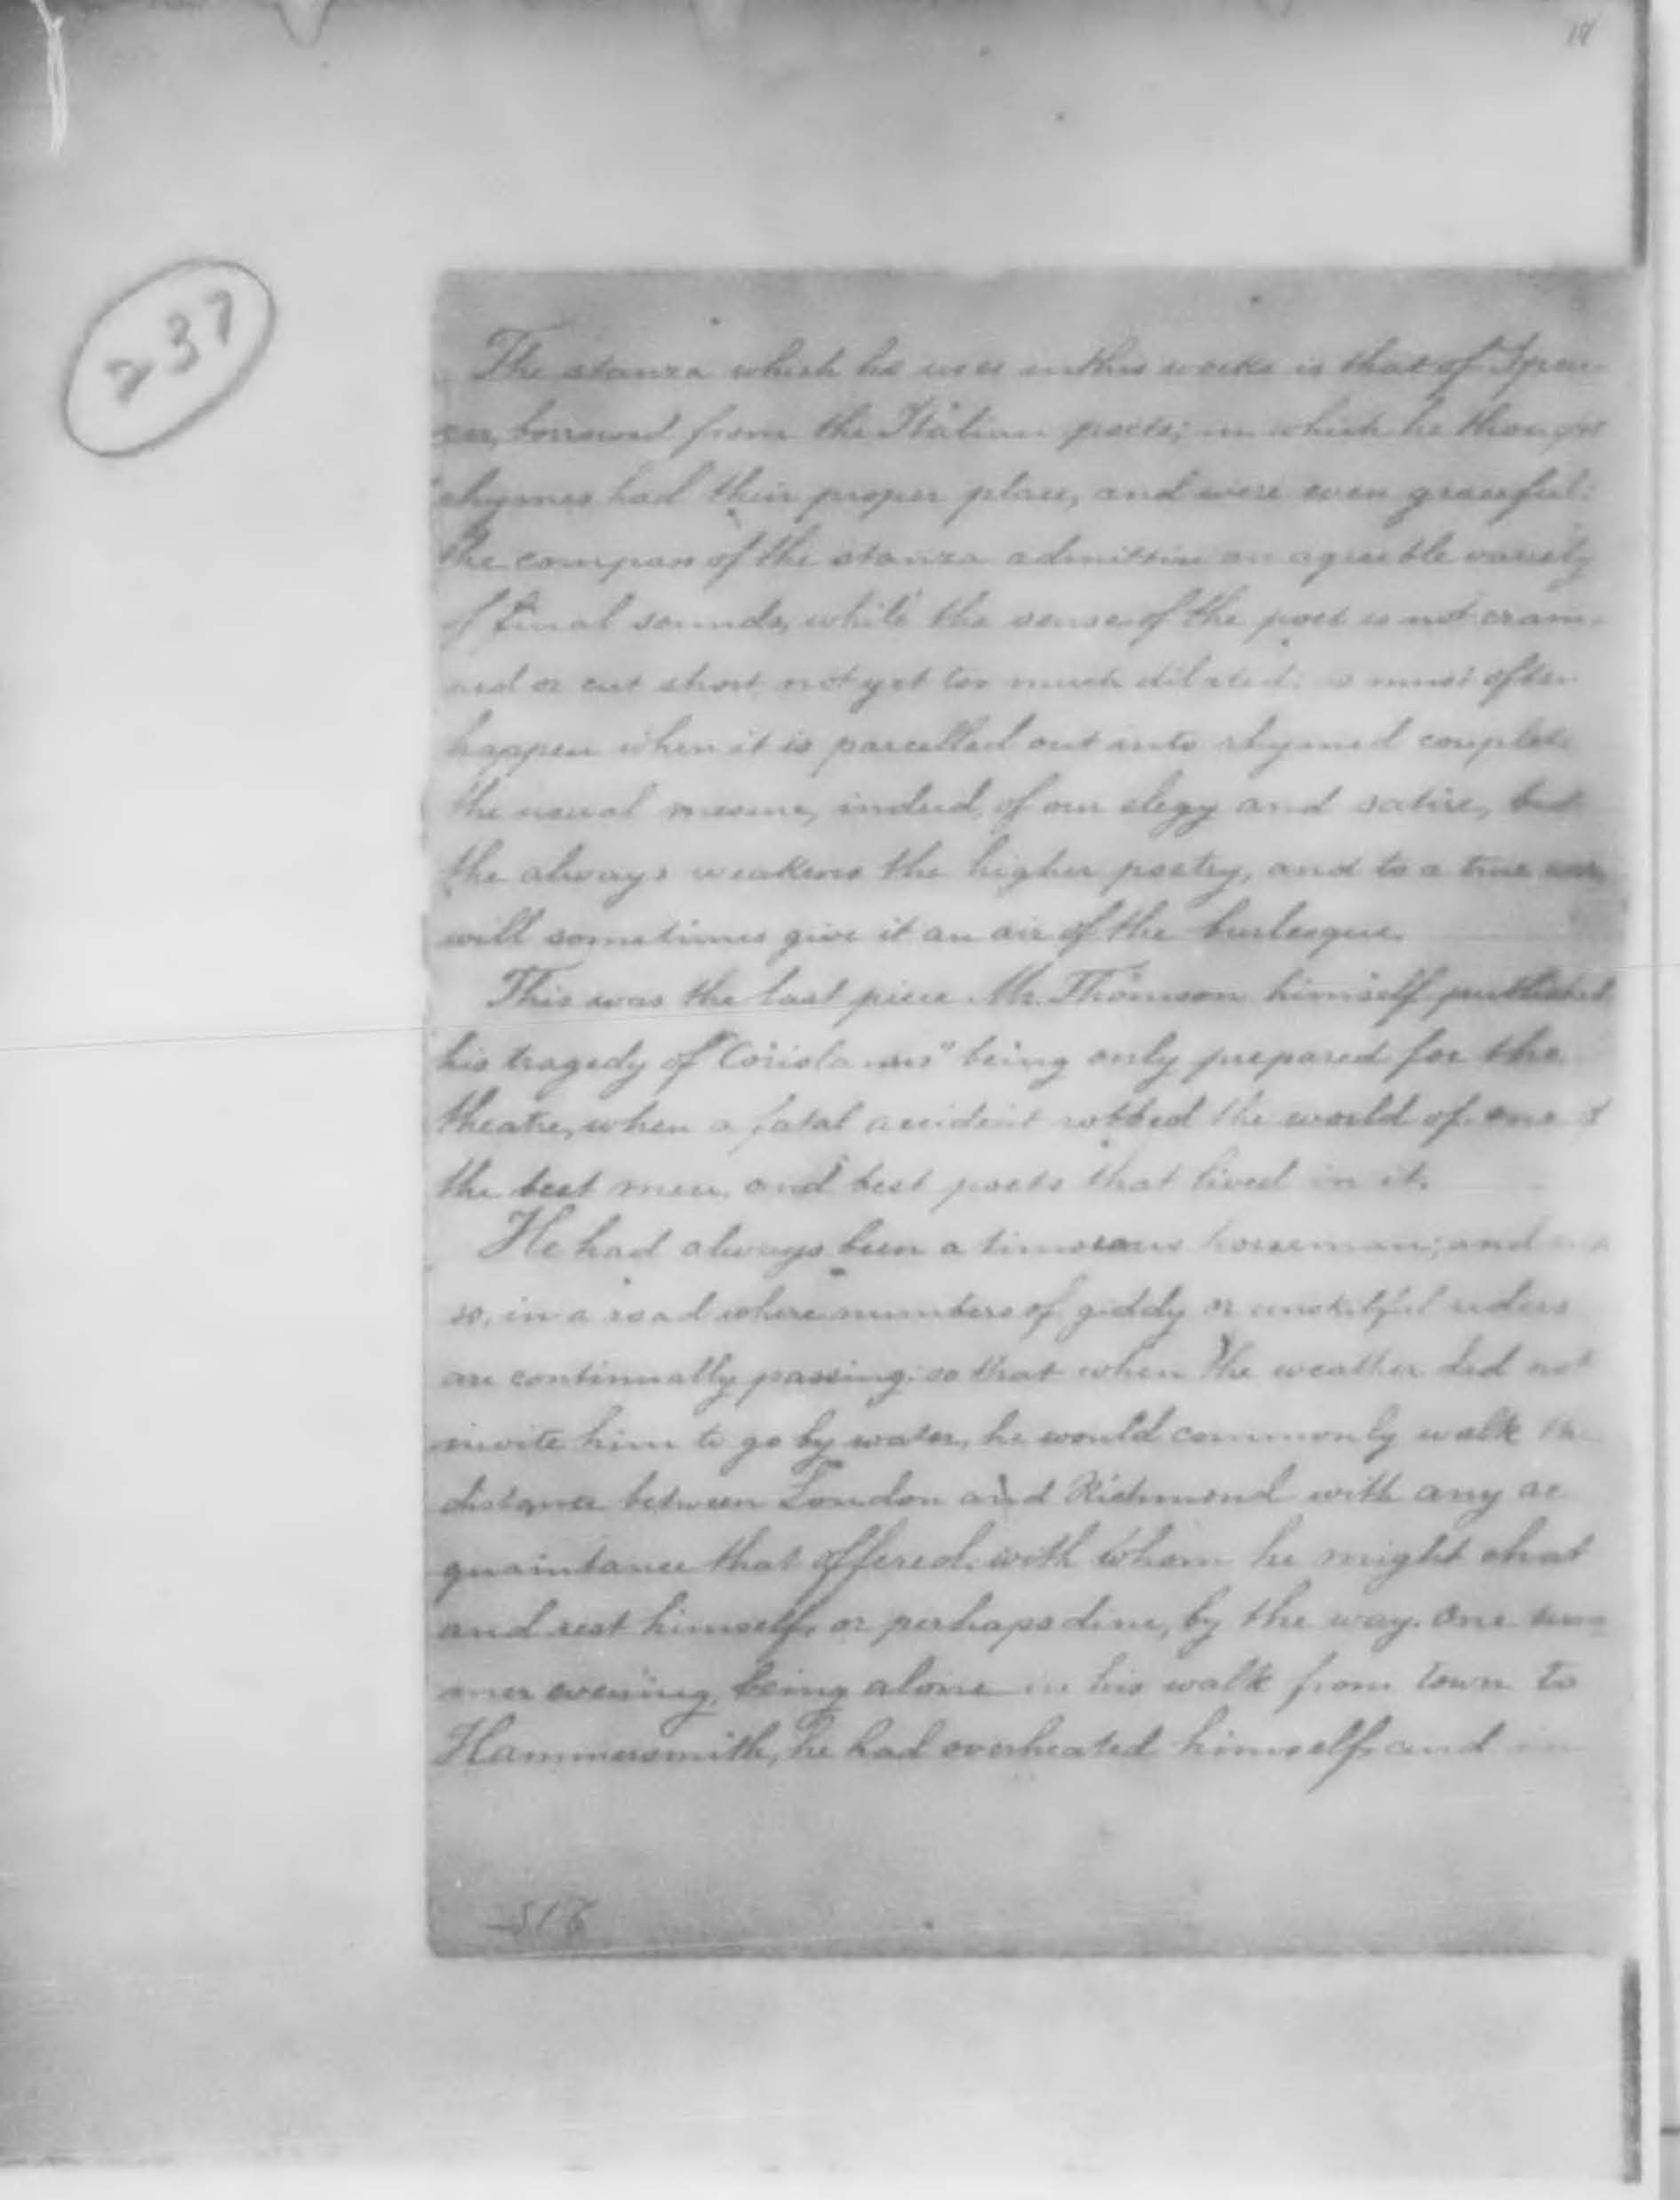 237
The stanza which he uses in this works is that of Spen-
ser, borrowed from the Italian poets; in which he thought
rhymes had their proper place, and were even graceful:
the compass of the stanza admitting an agreeble variety
of final sounds, while the sense of the poet is not cram-
med or cut short, not yet too much dilated: as must often
happen when it is parcelled out into rhymed couplets
the usual mesure, indeed, of our elegy and satire, but
the always weakens the higher poetry, and to a true ear,
will sometimes give it an air of the burlesque.
This was the last piece Mr. Thomson himself published
his tragedy of "Coriolanus" being only prepared for the
theatre, when a fatal accident robbed the world of one of
the best men, and best poets that lived in it.
He had always been a timorous horseman; and
so, in a road where numbers of giddy or unskilful riders
are continually passing: so that when the weather did not
invite him to go by water, he would commonly walk the
distance between London and Richmond with any ac
quaintance that offered, with whom he might chat
and rest himself, or perhaps dine, by the way. One sum-
mer evening, being alone in his walk from town to
Hammersmith, he had overheated himself, and in
516